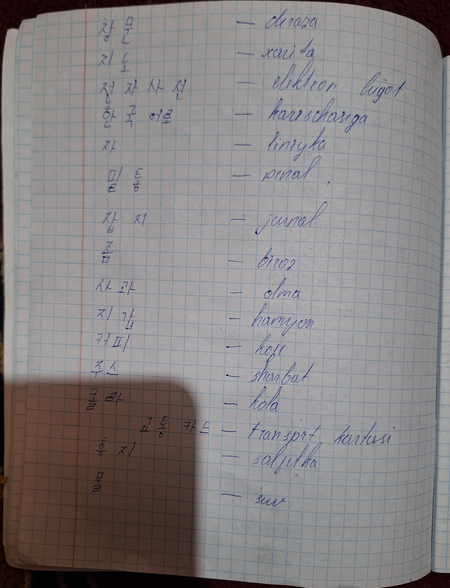 창 문 — deraza
지 도 — xarita
전 자 사 전 — elektron lug'at
한 국 어로 — kareschasiga
자 — linryka
필 통 — penal
잡 지 — jurnal
좀 — biroz
사 과 — olma
지 갑 — hamyon
커 피 — kofe
주 스 — sharbat
콜 라 — kola
교 통 카 드 — transport kartasi
휴 지 — salfetka
물 — suv